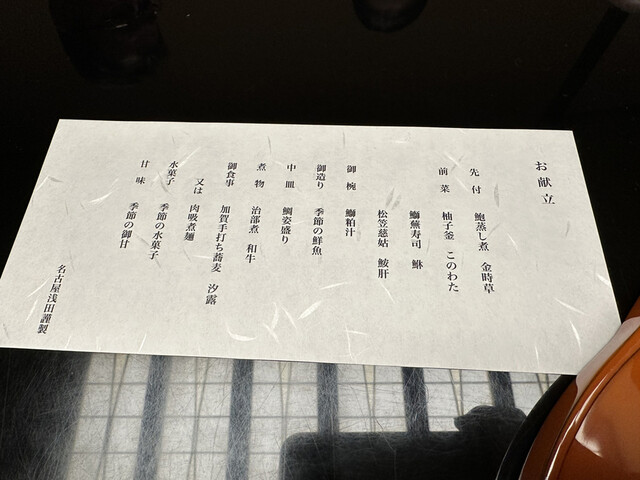 お献立
先付 鮑蒸し煮 金時草
前菜 柚子釜 このわた
鰤蕪寿司 鮴
松笠慈姑 鮟肝
御椀 鰤粕汁
御造り 季節の鮮魚
中皿 鯛姿盛り
煮物 治部煮 和牛
御食事 加賀手打ち蕎麦 汐露
又は 肉吸煮麺
水菓子 季節の水菓子
甘味 季節の御甘
名古屋浅田謹製